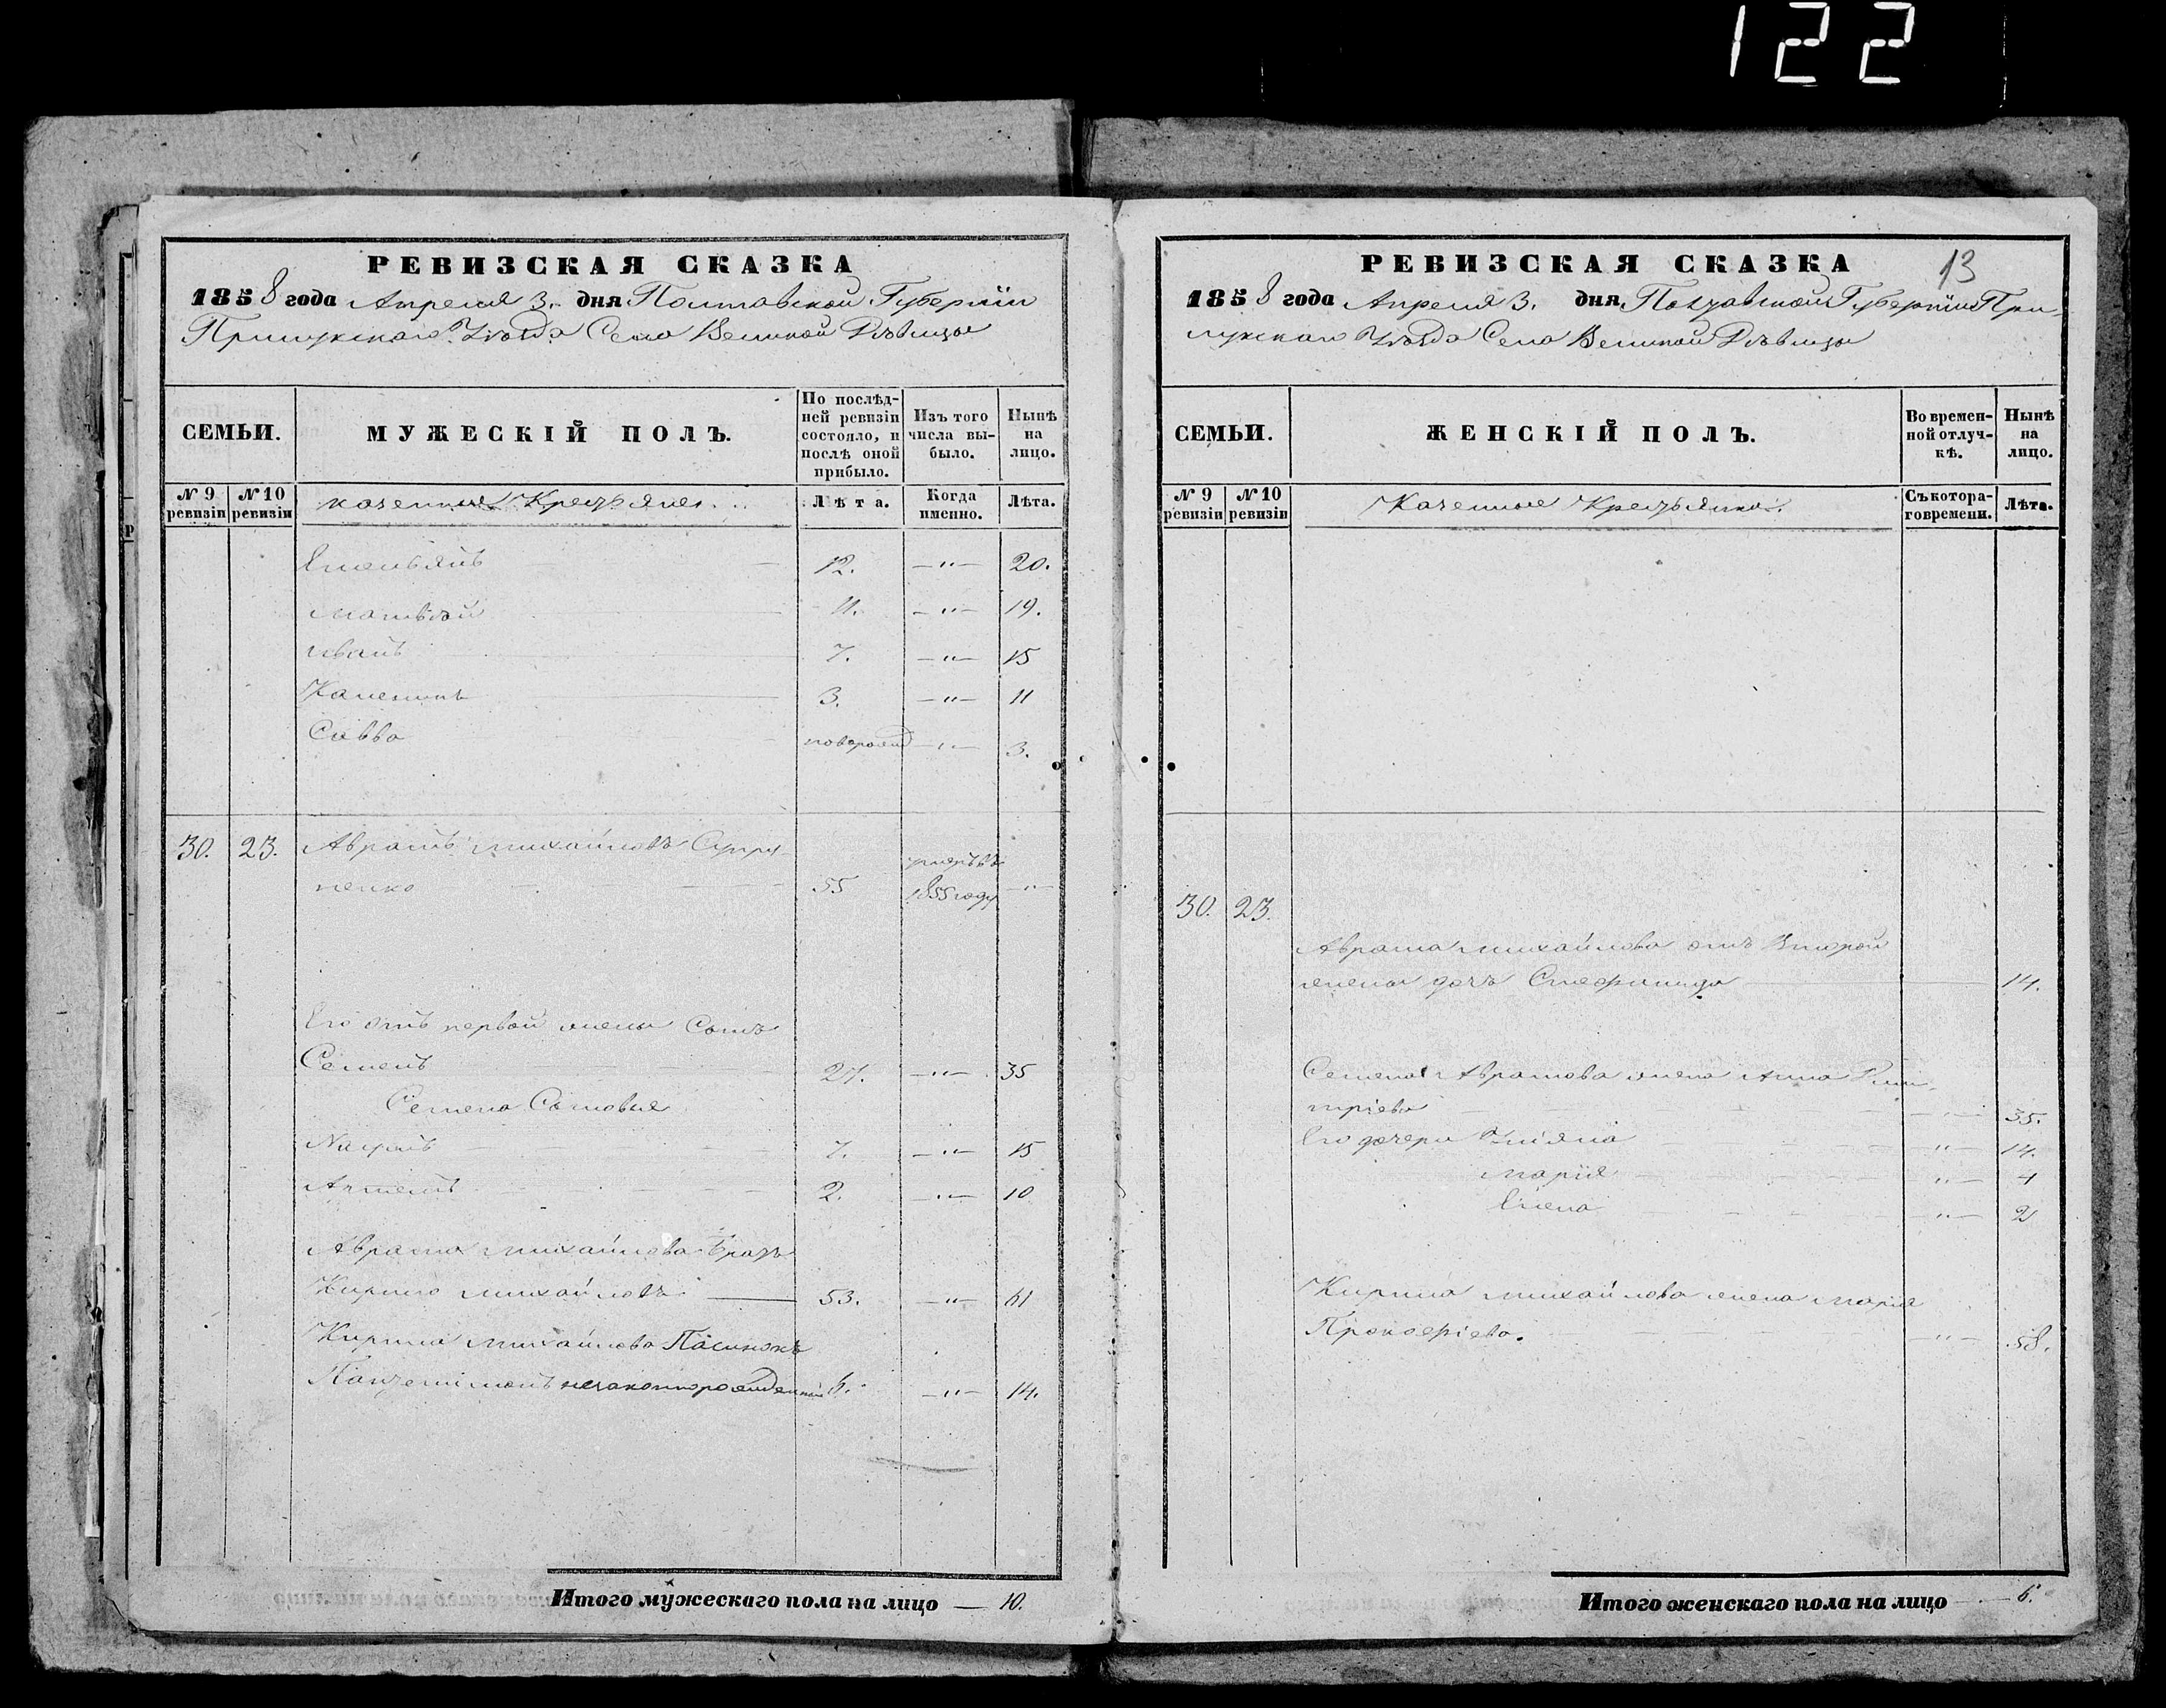 122
РЕВИЗСКАЯ СКАЗКА
1858 года Апреля 3. дня Полтавской Губерніи
Прилукскаго Уѣзда Села Великой Дѣвицы
СЕМЬИ.
МУЖЕСКІЙ ПОЛЪ.
По послѣд-
ней ревизіи
состояло, и
послѣ оной
прибыло.
Изъ того
числа вы-
было.
Нынѣ
на
лицо.
№ 9
ревизіи
№ 10
ревизіи
казенные Крестьяне.
Лѣта.
Когда
именно.
Лѣта.
Емельянъ 12. —"— 20.
Матвѣй 11. —"— 19.
Иванъ 7. —"— 15
Калениκъ 3. —"— 11
Савва новорожд —"— 3.
30. 23. Аврамъ Михайловъ
ненко 55 умеръ въ 1855 году —"—
Его отъ первой жены Сынъ
Семенъ 27. —"— 35
Семена Сыновья
Наумъ 7. —"— 15
Артемъ 2. —"— 10
Аврама Михайлова братъ
Кирило Михайловъ 53. —"— 61
Кирила Михайлова Пасынокъ
незаконнорожденный 6. —"— 14.
Итого мужескаго пола на лицо — 10.
РЕВИЗСКАЯ СКАЗКА 13
1858 года Апреля 3. дня Полтавской Губерніи При-
лукскаго Уѣзда Села Великой Дѣвицы
СЕМЬИ.
ЖЕНСКІЙ ПОЛЪ.
Во времен-
ной отлуч-
кѣ.
Нынѣ
на
лицо.
№ 9
ревизіи
№ 10
ревизіи
Казенные Крестьянки.
Съ котора-
го времени.
Лѣта.
30. 23.
Аврама Михайлова отъ Второй
жены дочь Стефанида 14.
Семена Аврамова жена Анна Дми-
тріева —"— 35.
Его дочери Уліяна —"— 14.
Марія —"— 4
Елена —"— 2
Кирила Михайлова жена Марія
Прокофіева. —"— 58.
Итого женскаго пола на лицо — 6.